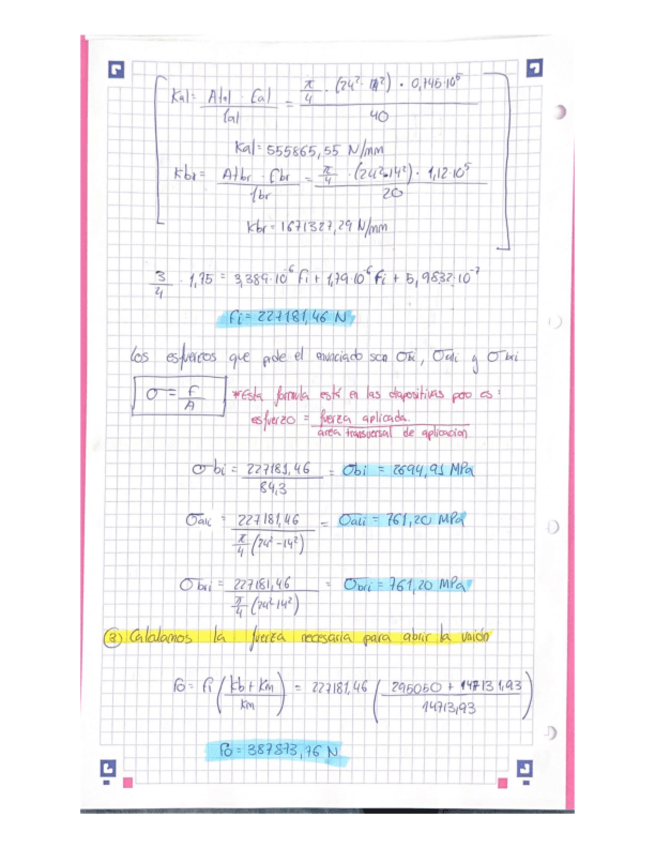 Kal = Atal · Eal / lal = π/4 · (24² · 14²) · 0,745·10⁵ / 40
Kal = 555865,55 N/mm
Kbr = Atbr · Ebr / lbr = π/4 · (24²-14²) · 1,12·10⁵ / 20
Kbr = 1671327,29 N/mm
3/4 · 1,75 = 3,389·10⁻⁶ Fi + 1,79·10⁻⁶ Fi + 5,9632·10⁻⁷
Fi = 227181,46 N
Los esfuerzos que pide el enunciado son σbi, σali y σbri
σ = F/A
*Esta formula está en las diapositivas pero es:
esfuerzo = fuerza aplicada / área transversal de aplicacion
σbi = 227181,46 / 84,3 = σbi = 2694,91 MPa
σali = 227181,46 / π/4 (24²-14²) = σali = 761,20 MPa
σbri = 227181,46 / π/4 (24²-14²) = σbri = 761,20 MPa
③ Calculamos la fuerza necesaria para abrir la unión
Fo = Fi (kb + km / km) = 227181,46 (295050 + 147131,93 / 14713,93)
Fo = 387873,76 N